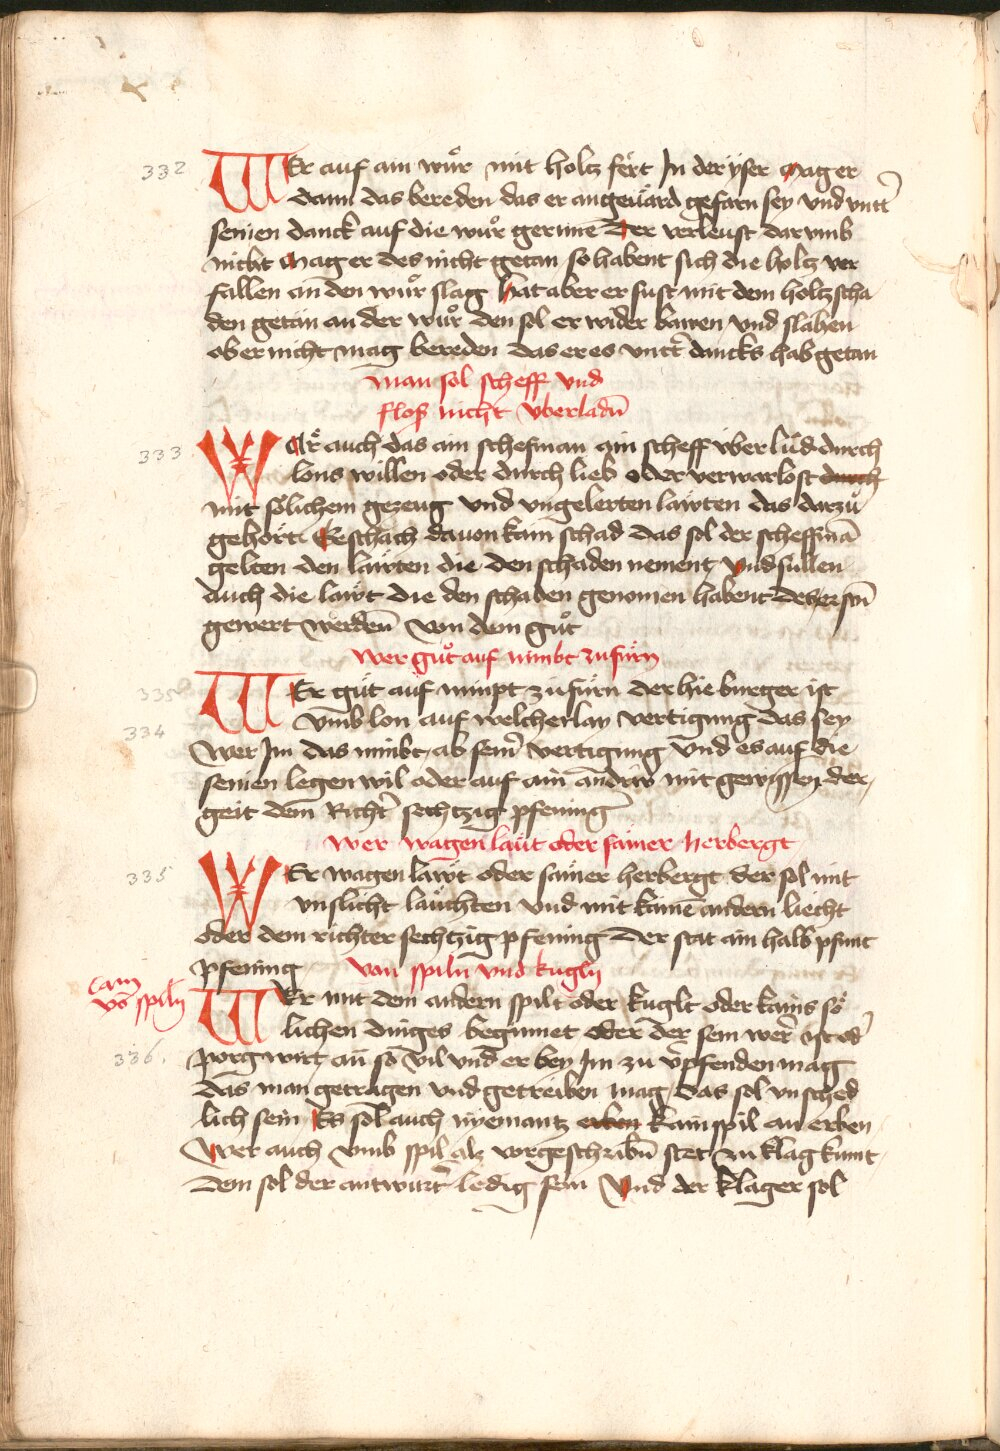 332 WEr auf ain wuͦr mit holtz fert In der yser Mag er
dann das bereden das er angeuͤard gefarn sey vnd vntt̄
seinen danck auf die wuͦr gerunē Der verleust darumb
nicht Mag er des nicht getan so habent sich die holtz ver
fallen an den wuͦr slag Hat aber er sust mit dem holtz scha
den getan an der wuͦr den sol er wider bawen vnd slahen
ob er nicht mag bereden das er es vntt̄ dancks hab getan
Man sol scheff vnd
flos nicht vberladn̄
333 WAͤr auch das ain schefman ain scheff vͤber lued durch
lons willen oder durch lieb oder verwarlost durch
mit soͤlichem gezeug vnd vngelerten laͤwten das darzuͦ
gehoͤrt Beschaͤch dauon kain schad das sol der scheffmā
gelten den laͤwten die den schaden nement Vnd suͤllen
auch die laͤwt die den schaden genomen habent des erstn̄
gewert werdenn̄ von dem guͦt
Wer guͦt auf nimbt zu fuͤrn
335 WEr guͦt auf nimpt zu fuͤrn der hie burger ist
334 vmb lon auf welcherlay vertigung das sey
Wer Im das nimbt ab seinr̄ vertigung Vnd es auf die
seinen legen wil oder auf ain andrew mit gewissen der
geit dem Richtr̄ sechtzig pfening
Wer wagenlaͤut oder samer herbergt
335 WEr wagen laͤwt oder saͤmer herbergt der sol mit
vnslicht laͤuchten vnd mit kainē andern liecht
oder dem richter sechtzig pfening Der stat ain halb pfunt
pfening Von spiln vnd kugln
Cam
võ spiln
WEr mit dem andern spilt oder kuglt oder kains soͤ
lichen dinges beginnet oder der sein wer̄ ist od̄
336. porg wirt an so vil vnd er bey Im zu v̄pfenden mag
das man getragen vnd getreiben mag das sol vnsched
lich sein Es sol auch nyemantz erben kain spil an erben
Wer auch vmb spil als vorgeschribn̄ stet zu klag kumt
dem sol der antwurtr̄ ledig sein Vnd der klager sol